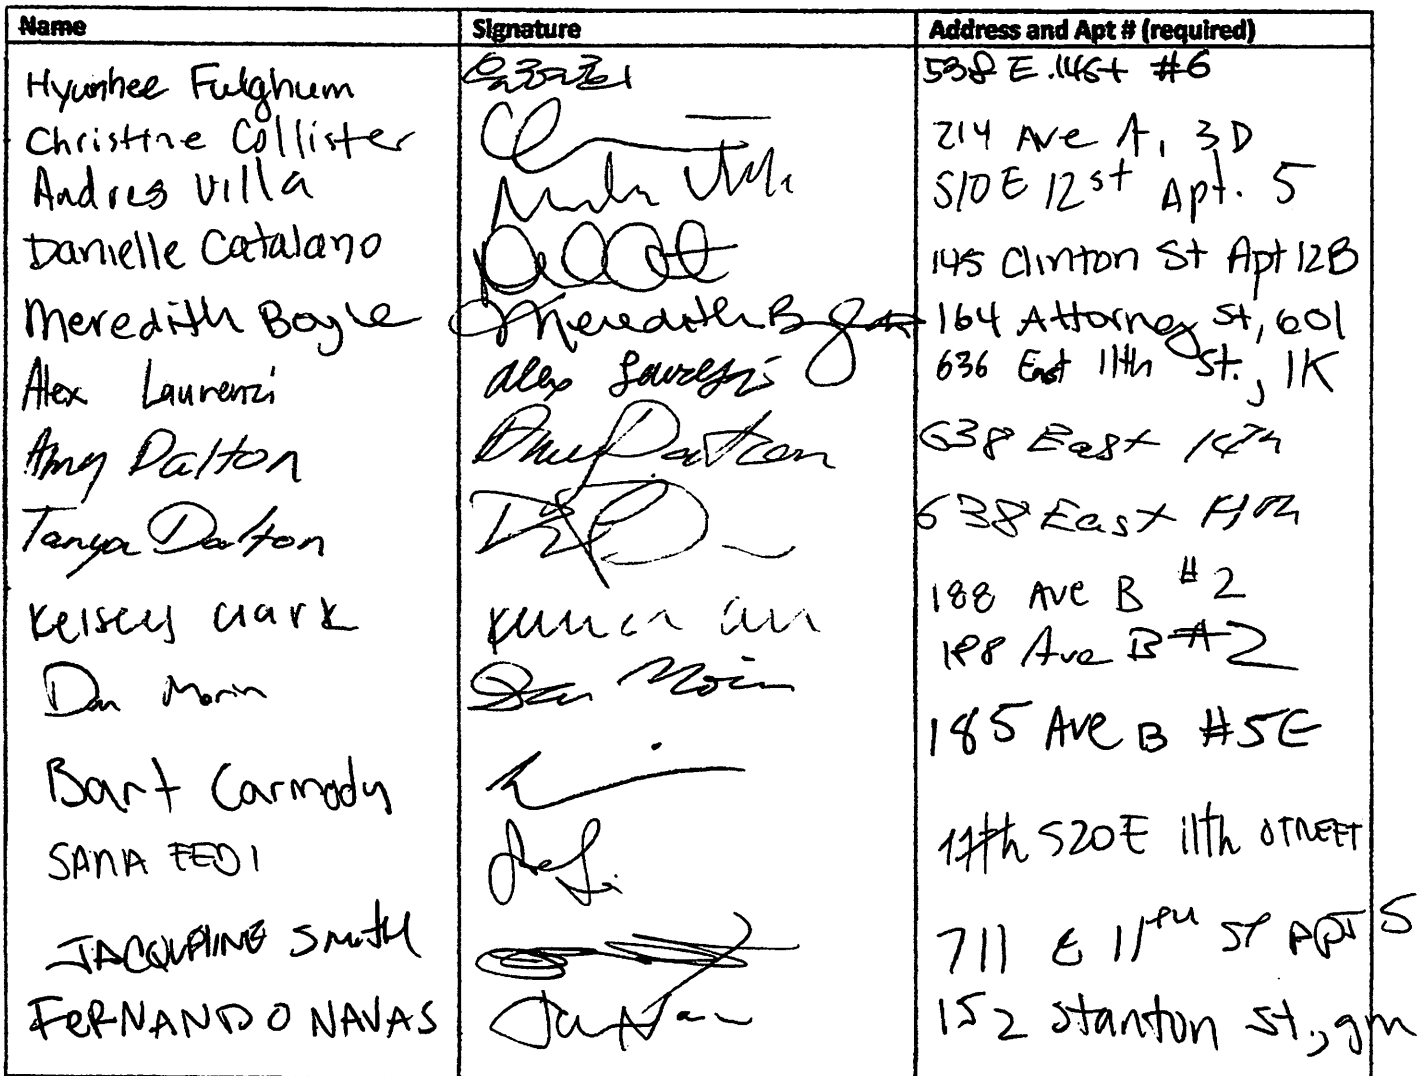 Name Signature Address and Apt # (required)
Hyunhee Fulghum 538 E. 14st #6
Christine Collister 214 Ave A, 3D
Andres Villa 510 E 12st Apt. 5
Danielle Catalano 145 Clinton St Apt 12B
Meredith Boyle Meredith Boyle 164 Attorney St, 601
Alex Laurenzi Alex Laurenzi 636 East 11th St., 1K
Amy Dalton Amy Dalton 638 East
Tanya Dalton 638 East
Kelsey Clark 188 Ave B #2
Dan Morin Dan Morin 188 Ave B #2
Bart Carmody 185 Ave B #5E
SANA FEDI 520 E 11th STREET
JACQUELINE SMITH 711 E 11th ST APT 5
FERNANDO NAVAS 152 Stanton St.,